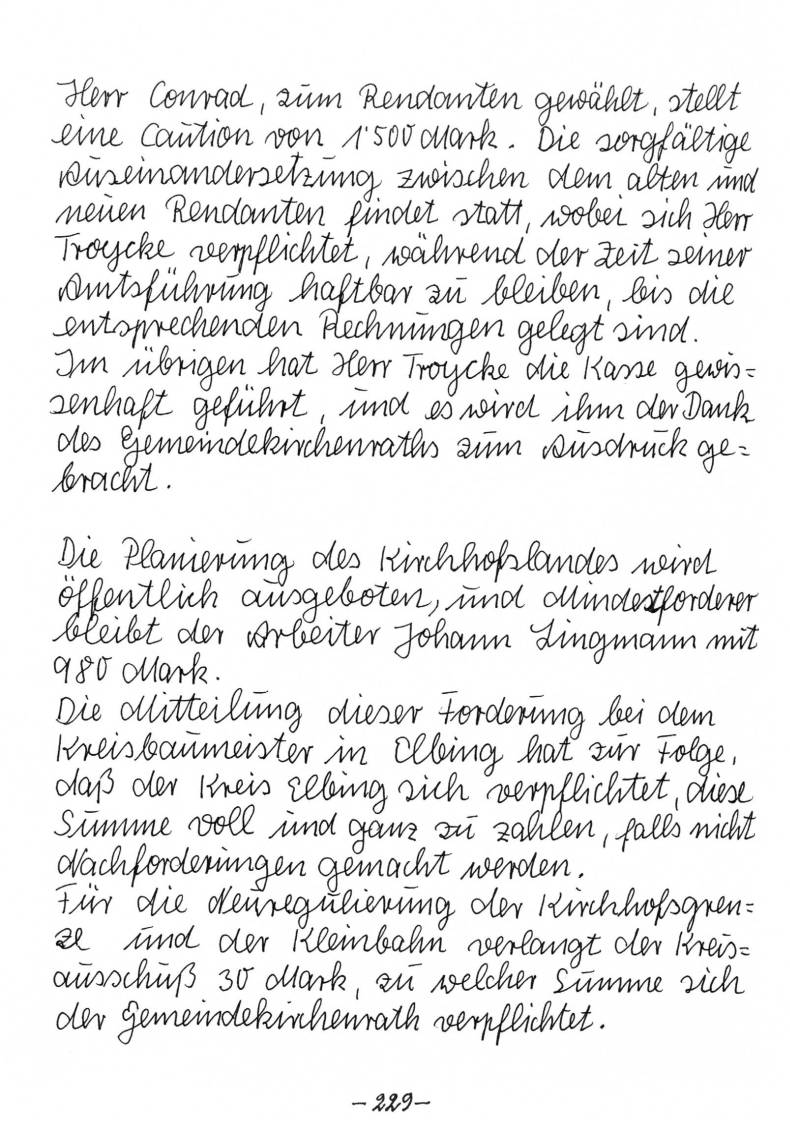 Herr Conrad, zum Rendanten gewählt, stellt
eine Caution von 1'500 Mark. Die sorgfältige
Auseinandersetzung zwischen dem alten und
neuen Rendanten findet statt, wobei sich Herr
Troycke verpflichtet, während der Zeit seiner
Amtsführung haftbar zu bleiben, bis die
entsprechenden Rechnungen gelegt sind.
Im übrigen hat Herr Troycke die Kasse gewis=
senhaft geführt, und es wird ihm der Dank
des Gemeindekirchenraths zum Ausdruck ge=
bracht.
Die Planierung des Kirchhofslandes wird
öffentlich ausgeboten, und Mindestforderer
bleibt der Arbeiter Johann Lingmann mit
980 Mark.
Die Mitteilung dieser Forderung bei dem
Kreisbaumeister in Elbing hat zur Folge,
daß der Kreis Elbing sich verpflichtet, diese
Summe voll und ganz zu zahlen, falls nicht
Nachforderungen gemacht werden.
Für die Neuregulierung der Kirchhofsgren=
ze und der Kleinbahn verlangt der Kreis=
ausschuß 30 Mark, zu welcher Summe sich
der Gemeindekirchenrath verpflichtet.
-229-